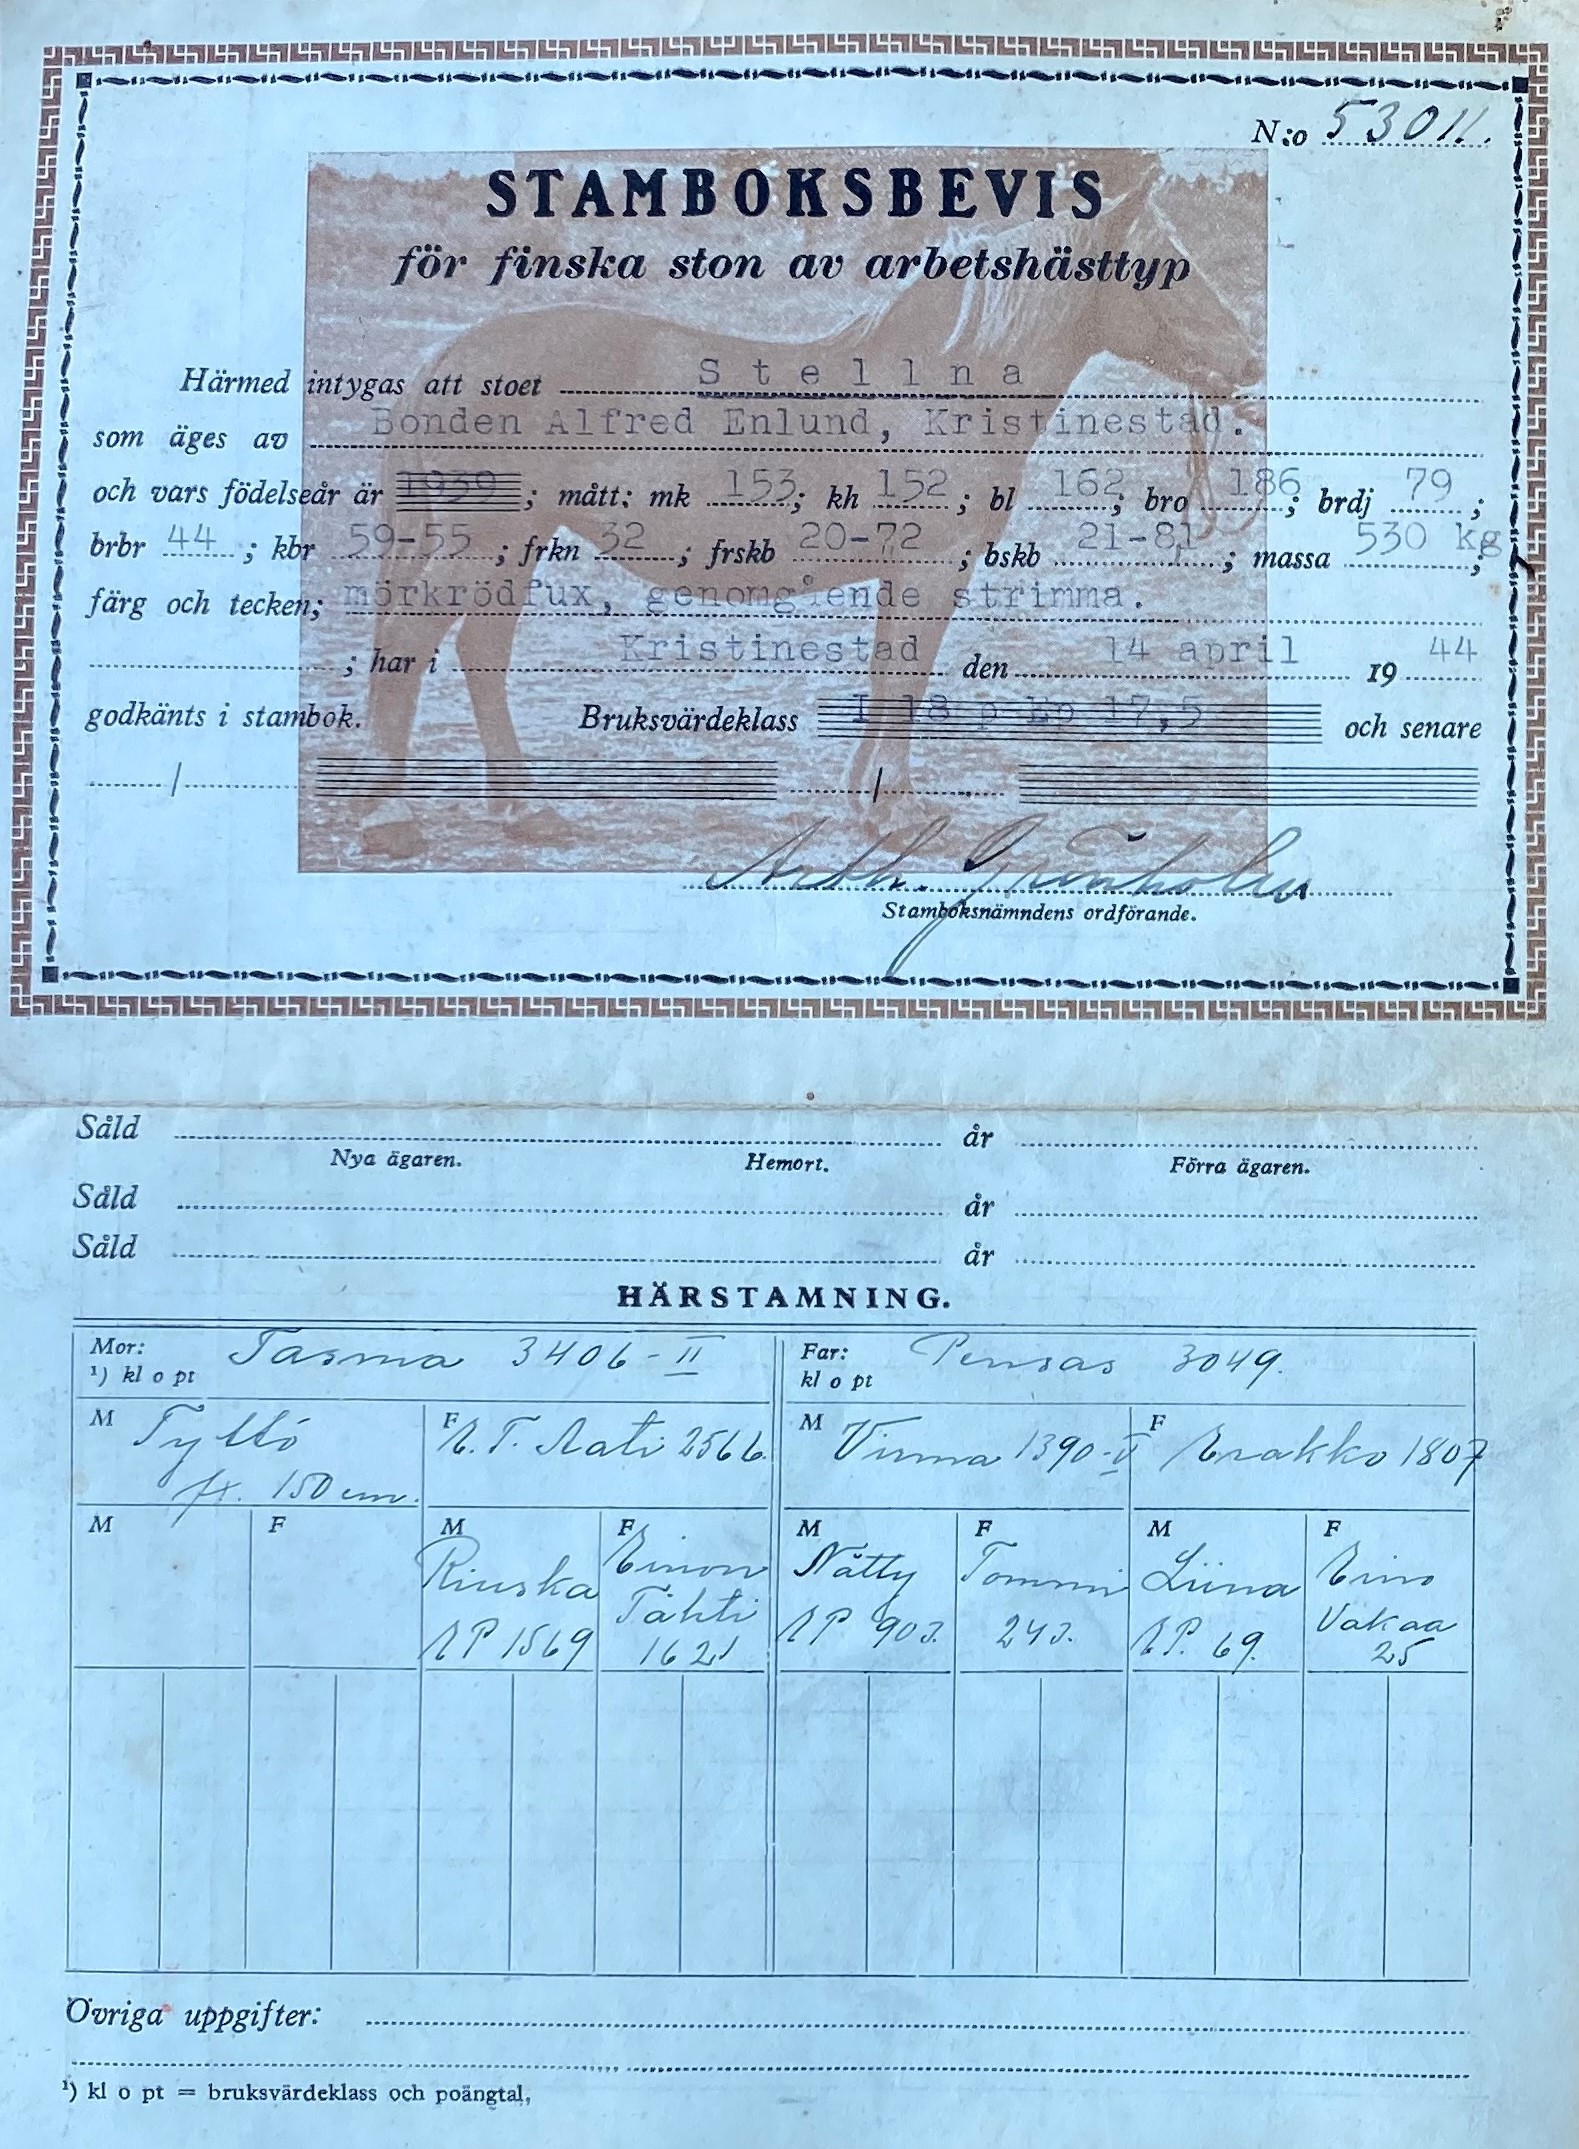 N:o 53011.
STAMBOKSBEVIS
för finska ston av arbetshästtyp
Härmed intygas att stoet Stellna
som äges av Bonden Alfred Enlund, Kristinestad.
och vars födelseår är 1939; mått: mk 153; kh 152; bl 162; bro 186; brdj 79;
brbr 44; kbr 59-55; frkn 32; frskb 20-72; bskb 21-81; massa 530 kg;
färg och tecken; mörkrödfux, genomgående strimma.
; har i Kristinestad den 14 april 1944
godkänts i stambok. Bruksvärdeklass I 18 p Ep 17,5 och senare
/ /
Arth. Grönholm
Stamboksnämndens ordförande.
Såld år
Nya ägaren. Hemort. Förra ägaren.
Såld år
Såld år
HÄRSTAMNING.
Mor: Tasma 3406-II Far: Pensas 3049.
¹) kl o pt kl o pt
M Tyttö F E.T. Aati 2566 M Virma 1390-II F Erakko 1807
fx. 150 cm.
M F M F M F M F
Riuska Einon Nätty Tommi Liina Eino
Tähti Vakaa
EP 1569 1621 EP 903. 243. EP. 69. 25
Övriga uppgifter:
¹) kl o pt = bruksvärdeklass och poängtal,